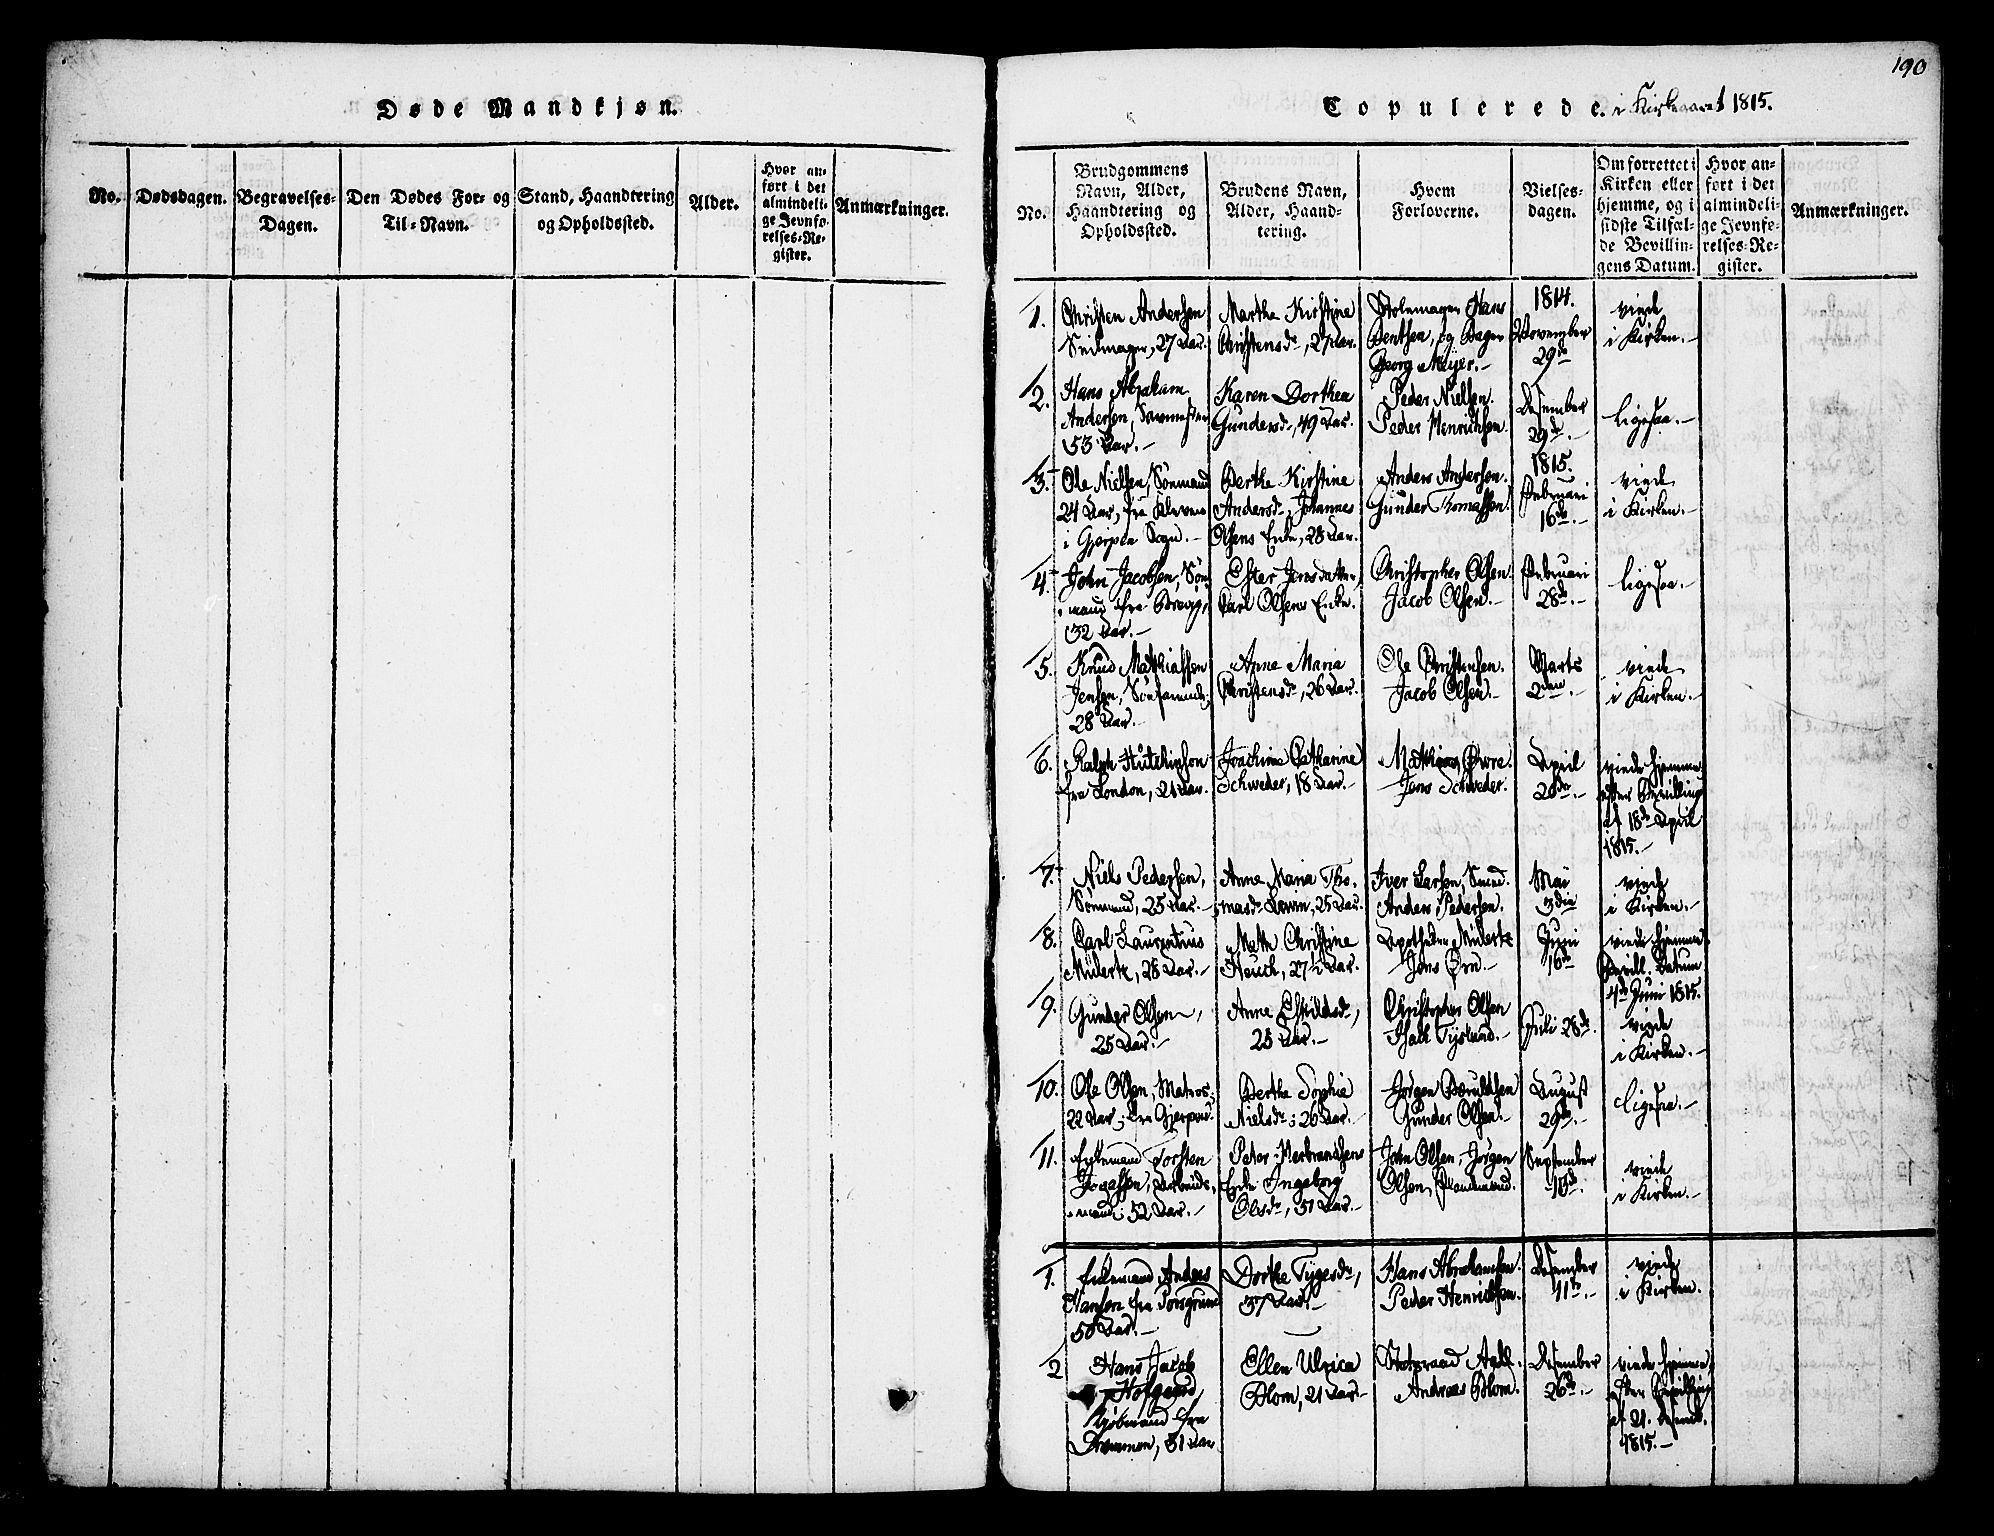 190
Døde Mandkjøn.
No.
Dødsdagen.
Begravelses-
Dagen.
Den Dødes For- og
Til-Navn.
Stand, Haandtering
og Opholdssted.
Alder.
Hvor an-
ført i det
almindeli-
ge Jevnfø-
relses-Re-
gister.
Anmærkninger.
Copulerede. i Kirkeaaret 1815.
No.
Brudgommens
Navn, Alder,
Haandtering og
Opholdssted.
Brudens Navn,
Alder, Haand-
tering.
Hvem
Forloverne.
Vielses-
dagen.
Om forrettet i
Kirken eller
hjemme, og i
sidste Tilfæl-
de Bevillin-
gens Datum.
Hvor an-
ført i det
almindeli-
ge Jevnfø-
relses-Re-
gister.
Anmærkninger.
1.
Christen Andersen
Seilmager, 27 Aar.
Marthe Kirstine
Christensdr, 27 Aar.
Stolemager Hans
Bentsen, og Bager
Georg Meyer.-
1814.
November
29de
viede
i Kirken.-
2.
Hans Abraham
Andersen,
53 Aar.-
Karen Dorthea
Gundersdr, 49 Aar.
Peder Nielsen.
Peder Henrichsen.
Desember
29de.-
ligesaa.-
3.
Ole Nielsen, Sömand
24 Aar, fra Kleven
i Gjerpen Sogn.-
Berthe Kirstine
Andersdr, Johannes
Olsens Enke, 28 Aar.
Anders Andersen.
Gunder Thomassen.
1815.
Februari
16de.-
viede
i Kirken.-
4.
John Jacobsen, Sö-
mand fra Brevig,
32 Aar.-
Ester Jensdatter,
Carl Olsens Enke.
Christopher Olsen.
Jacob Olsen.-
Februari
28de.-
ligesaa.-
5.
Knud Mathiassen
Jensen,
28 Aar.-
Anne Maria
Christensdr, 26 Aar.
Ole Christensen.
Jacob Olsen.-
Marts
2den.-
viede
i Kirken.-
6.
Ralph Hutchinson
fra London, 21 Aar.
Joachime Catharine
Schweder, 18 Aar.-
Mathias Övre
Jens Schweder.
April
20de.-
viede hjemme
efter Bevilling
af 18de April
1815.-
7.
Niels Pedersen,
Sömand, 25 Aar.-
Anne Maria Tho-
masdr, 25 Aar.
Iver Larsen, Smed.
Anders Pedersen.
Mai
3die
viede
i Kirken.-
8.
Carl Laurentius
Mulertz, 28 Aar.-
Mette Christine
Heuch, 27½ Aar.
Apotheker Mulertz
Jens Örn.-
Juni
16de
viede hjemme
Bevill. Datum
4de Juni 1815.
9.
Gunder Olsen,
25 Aar.-
Anne Eskildsdr,
25 Aar.-
Christopher Olsen
Isak Tyslund.-
Juli 28de.
viede
i Kirken.-
10.
Ole Olsen, Matros;
22 Aar, fra Gjerpen.
Berthe Sophie
Nielsdr; 26 Aar.-
Jørgen
Gunder Olsen.-
August
29de.-
ligesaa.-
11.
Enkemand Torsten
JoNassen, Arbeids-
mand; 52 Aar.-
Peter Herbrandsens
Enke Ingeborg
Olsdr, 51 Aar.-
John Olsen, Jørgen
Olsen,
September
10de.
viede
i Kirken.-
1.
Enkemand Anders
Hansen fra Porsgrund
50 Aar.-
Dorthe Tygesdr,
37 Aar.-
Hans Abrahamsen.
Peder Henrichsen.
Desember
11te.-
viede
i Kirken.
2
Hans Jacob
Hofgaard,
Kjöbmand fra
Drammen, 31 Aar
Ellen Ulrica
Blom, 21 Aar-
Statsraad Aall.
Andreas Blom.
Desember
26de.-
viede hjemme,
efter Bevilling
af 21. Desemb.
1815.-